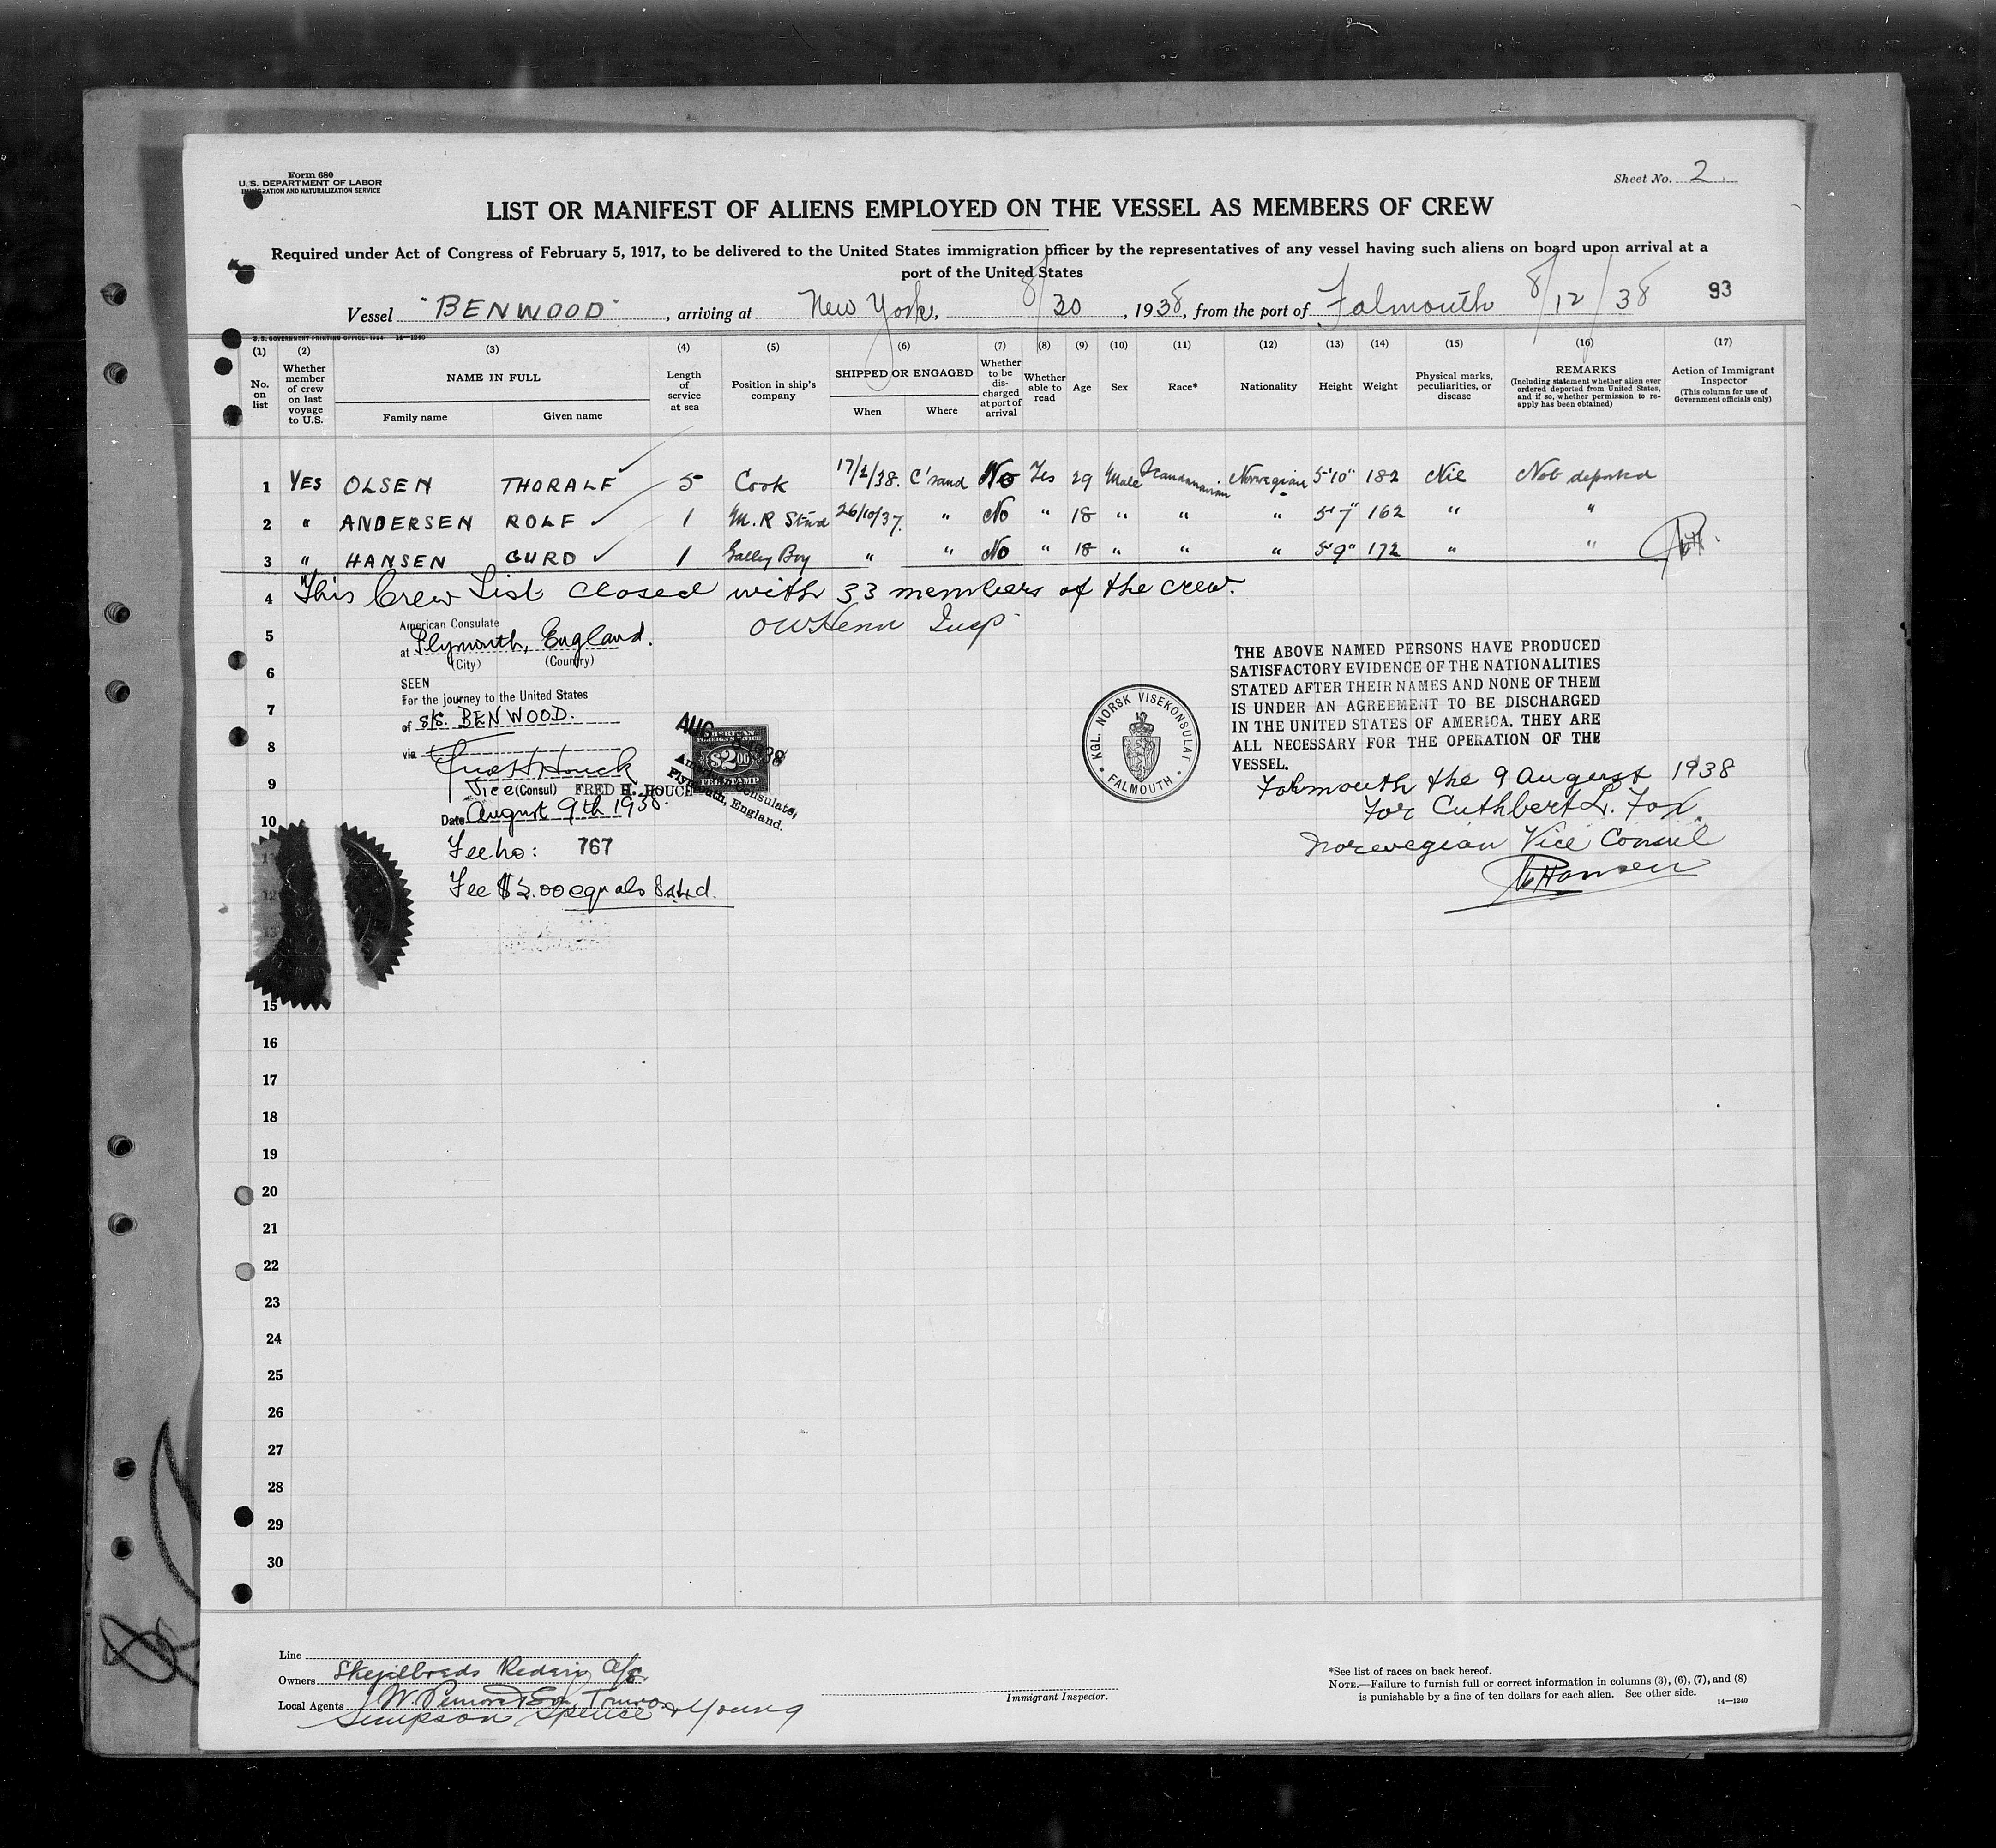 Form 680
U. S. DEPARTMENT OF LABOR
IMMIGRATION AND NATURALIZATION SERVICE
Sheet No. 2
LIST OR MANIFEST OF ALIENS EMPLOYED ON THE VESSEL AS MEMBERS OF CREW
Required under Act of Congress of February 5, 1917, to be delivered to the United States immigration officer by the representatives of any vessel having such aliens on board upon arrival at a
port of the United States
Vessel "BENWOOD", arriving at New York, 8/30, 1938, from the port of Falmouth 8/12/38 93
U. S. GOVERNMENT PRINTING OFFICE: 1934 14—1240
(1) (2) (3) (4) (5) (6) (7) (8) (9) (10) (11) (12) (13) (14) (15) (16) (17)
No. on list
Whether member of crew on last voyage to U.S.
NAME IN FULL
Family name
Given name
Length of service at sea
Position in ship's company
SHIPPED OR ENGAGED
When
Where
Whether to be discharged at port of arrival
Whether able to read
Age
Sex
Race*
Nationality
Height
Weight
Physical marks, peculiarities, or disease
REMARKS
(Including statement whether alien ever ordered deported from United States, and if so, whether permission to reapply has been obtained)
Action of Immigrant Inspector
(This column for use of Government officials only)
1 YES OLSEN THORALF 5 Cook 17/1/38. C'sand No Yes 29 Male Scandanavian Norwegian 5'10" 182 Nil Not deported
2 " ANDERSEN ROLF 1 M.R Stwd 26/10/37. " No " 18 " " " 5'7" 162 " "
3 " HANSEN GURD 1 Galley Boy " " No " 18 " " " 5'9" 172 " "
4 This Crew List closed with 33 members of the crew.
5
American Consulate
at Plymouth, England.
(City) (Country)
SEEN
For the journey to the United States
of S/S. BENWOOD.
via
Vice (Consul) FRED H. HOUCK
Date August 9th 1938.
Fee No: 767
Fee $2.00 equals 8s4d.
AUG 9 1938
AMERICAN
FOREIGN SERVICE
$2.00
FEE STAMP
American Consulate,
Plymouth, England.
KGL. NORSK VISEKONSULAT
FALMOUTH
THE ABOVE NAMED PERSONS HAVE PRODUCED
SATISFACTORY EVIDENCE OF THE NATIONALITIES
STATED AFTER THEIR NAMES AND NONE OF THEM
IS UNDER AN AGREEMENT TO BE DISCHARGED
IN THE UNITED STATES OF AMERICA. THEY ARE
ALL NECESSARY FOR THE OPERATION OF THE
VESSEL.
Falmouth the 9 August 1938
For Cuthbert L. Fox.
Norwegian Vice Consul
6
7
8
9
10
11
12
13
15
16
17
18
19
20
21
22
23
24
25
26
27
28
29
30
Line
Owners Skjelbreds Rederi A/S.
Local Agents
Simpson Spence & Young
Immigrant Inspector.
*See list of races on back hereof.
NOTE.—Failure to furnish full or correct information in columns (3), (6), (7), and (8)
is punishable by a fine of ten dollars for each alien. See other side.
14—1240